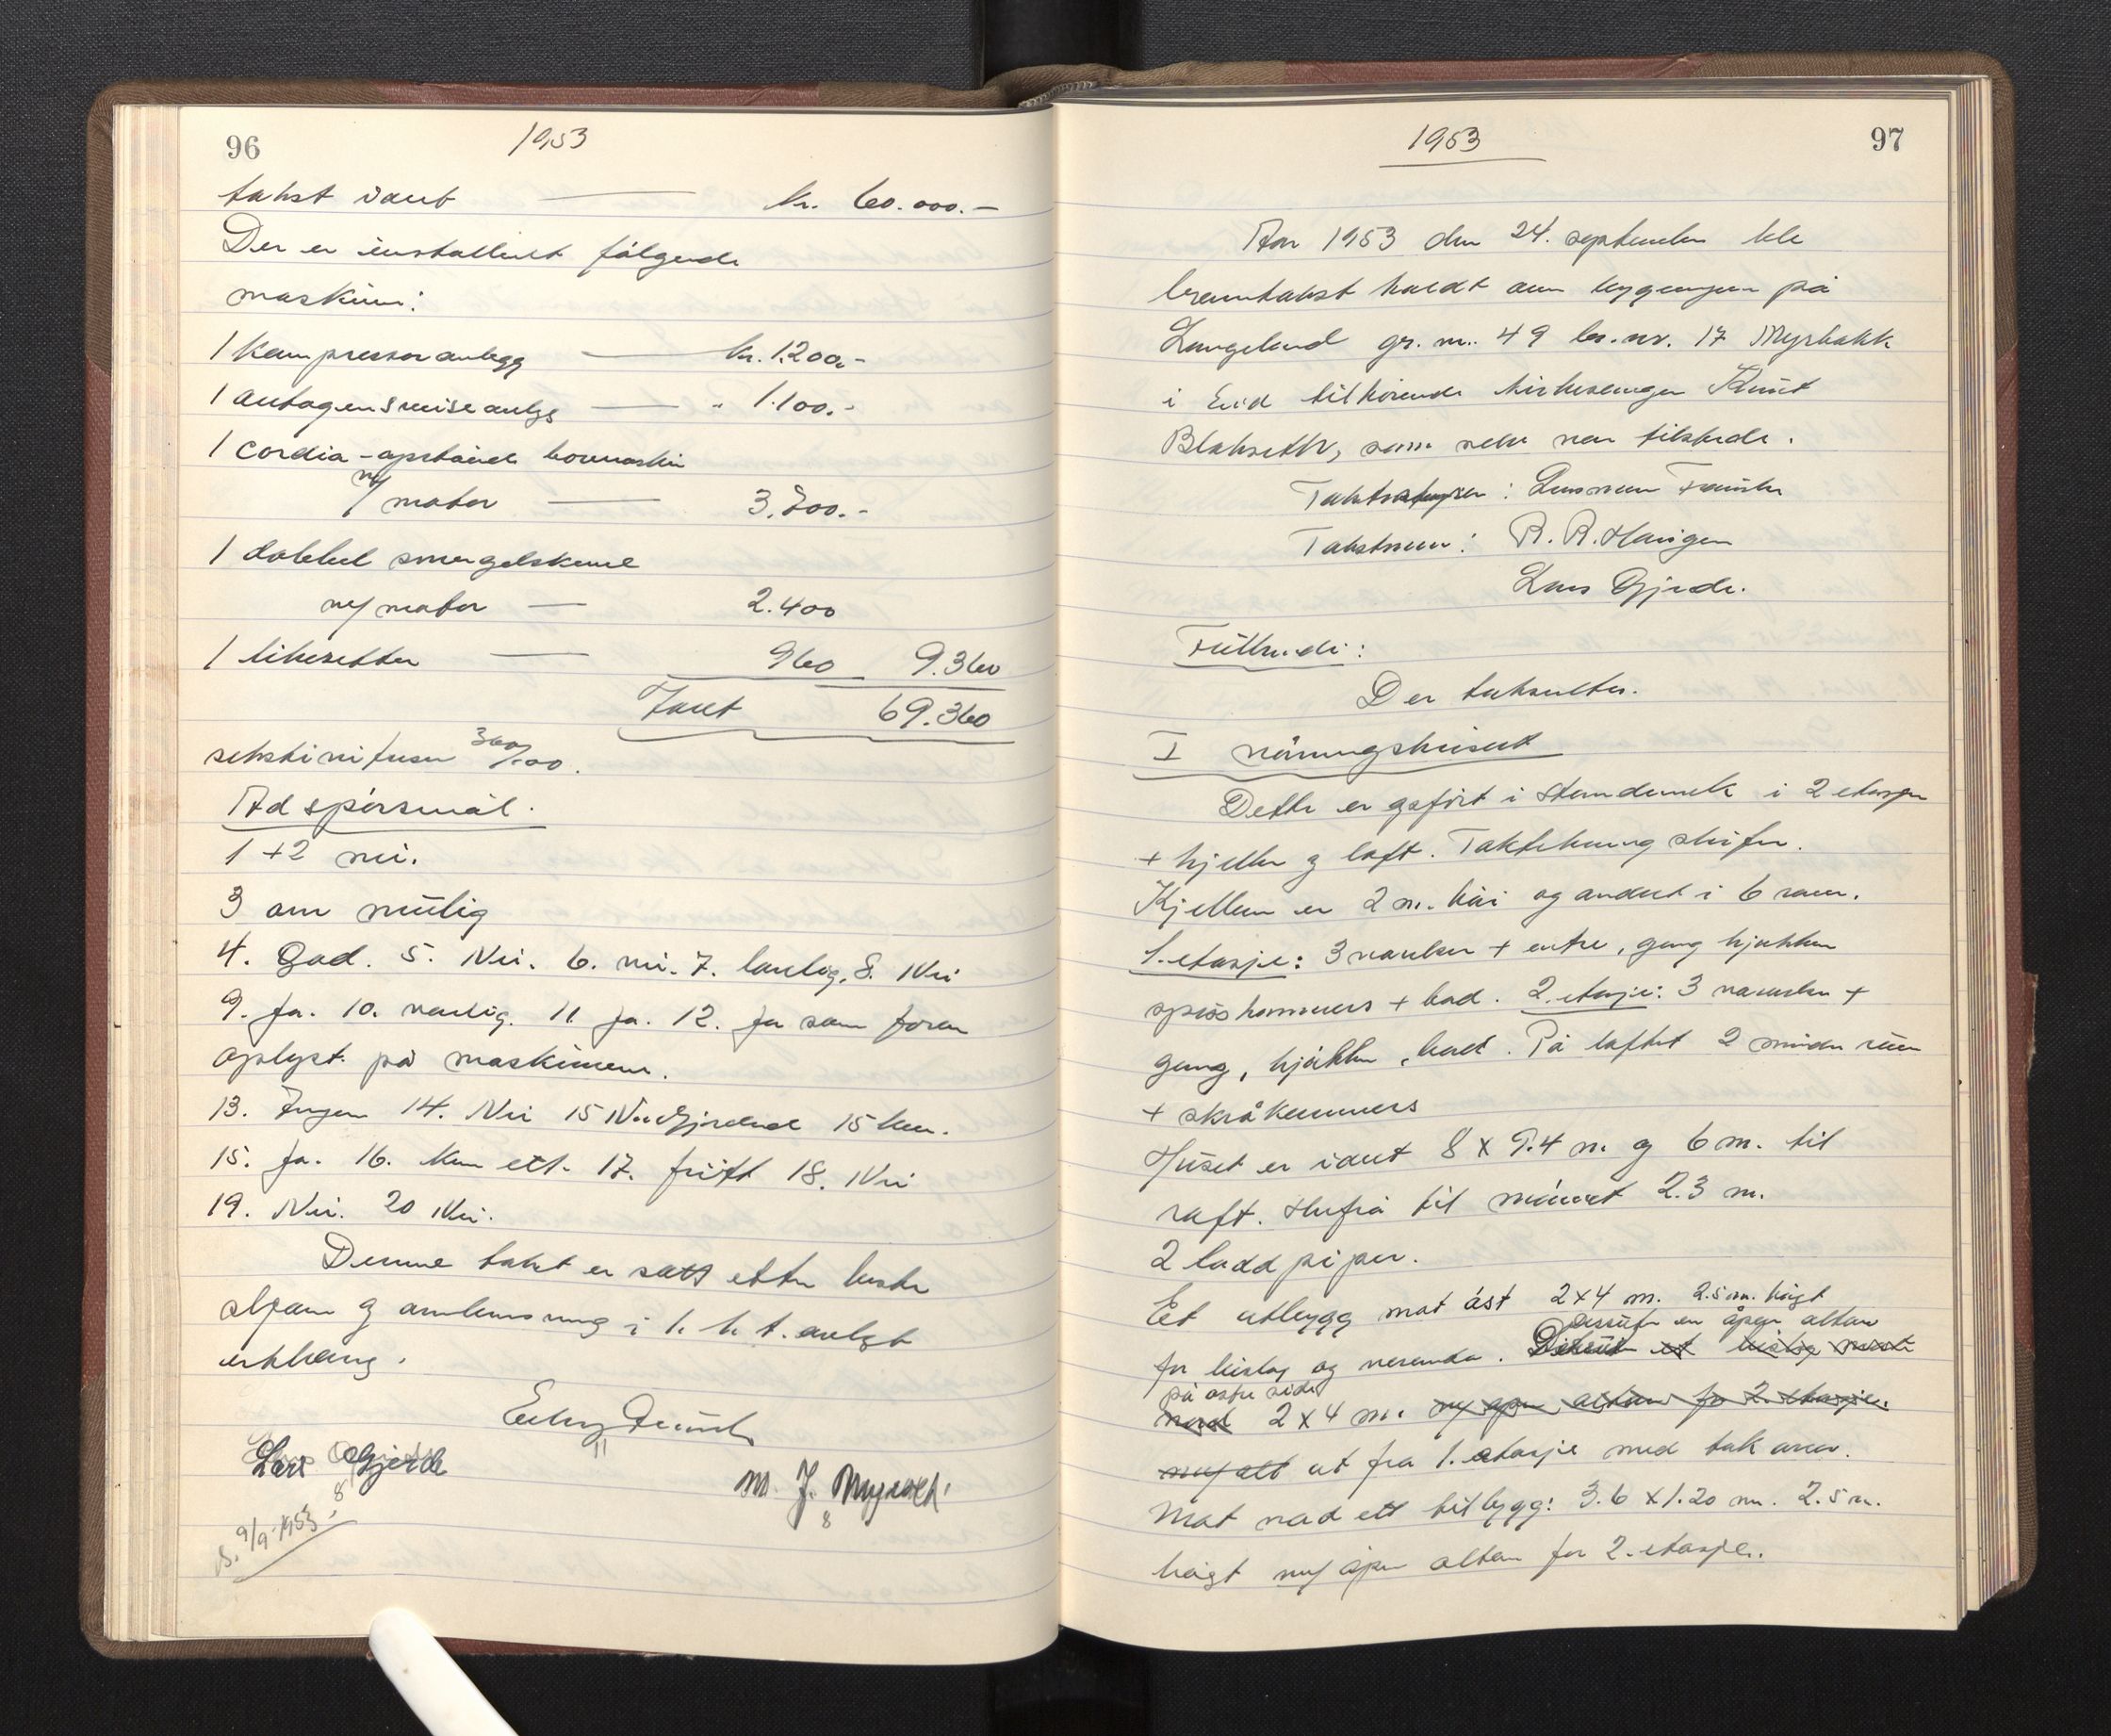 96
1953
takst idant kr. 60.000.-
Der er installert følgende
maskiner:
1 kompressoranlegg kr. 1.200,-
1 autogensveiseanlegg " 1.100.-
1 Cordia - opstående boremaskin
m/ motor 3.700.-
1 dobbel smergelskive
m/ motor 2.400
1 likeretter 960 9.360
Taxt 69.360
sekstinitusen 360/100.
Ad spørsmål.
1 + 2 nei.
3 om mulig
4. God. 5. Nei. 6. nei. 7. lovlig. 8. Nei
9. Ja. 10. vanlig. 11 Ja. 12. Ja som foran
oplyst på maskinene.
13. Ingen 14. Nei 15 Nordfjordeid 15 km.
15. Ja. 16. Kun ett. 17. fritt 18. Nei
19. Nei. 20 Nei.
Denne takst er satt etter beste
skjønn og i h. h. t. avlagt
erklæring.
Lars Gjerde
M. J. Myrold
8
8
11
S. 9/9-1953
1953
97
Aar 1953 den 24. september ble
branntakst holdt over bygningen på
Langeland gr. nr. 49 br. nr. 17 Myrbakk
i Eid tilhørende kirkesanger Knut
Blakseth, som selv var tilstede.
Takstbestyrer: Lensmann
Takstmenn: R. R. Haugen
Lars Gjerde.
Fullendi:
Der takseres.
I våningshuset
Dette er opført i stenderverk i 2 etasjer
+ kjeller og loft. Taktekning skifer.
Kjelleren er 2 m. høi og inndelt i 6 rom.
1. etasje: 3 værelser + entre, gang kjøkken
spiskammers + bad. 2. etasje: 3 værelser +
gang, kjøkken, bad. På loftet 2 mindre rum
+ skråkammers
Huset er idant 8 x 9.4 m. og 6 m. til
raft. Herfra til mønet 2.3 m.
2 ladd piper.
Et utbygg mot øst 2x4 m. 2.5 m. høgt
Dessuten en åpen altan
for bislag og veranda. Dessuten et bislag mot
på østre side
nord 2 x 4 m. m/ åpen altan for 2. etasje.
m/ alt ut fra 1. etasje med tak over.
Mot nord ett tilbygg: 3.6 x 1.20 m. 2.5 m.
høgt m/ åpen altan for 2. etasje.